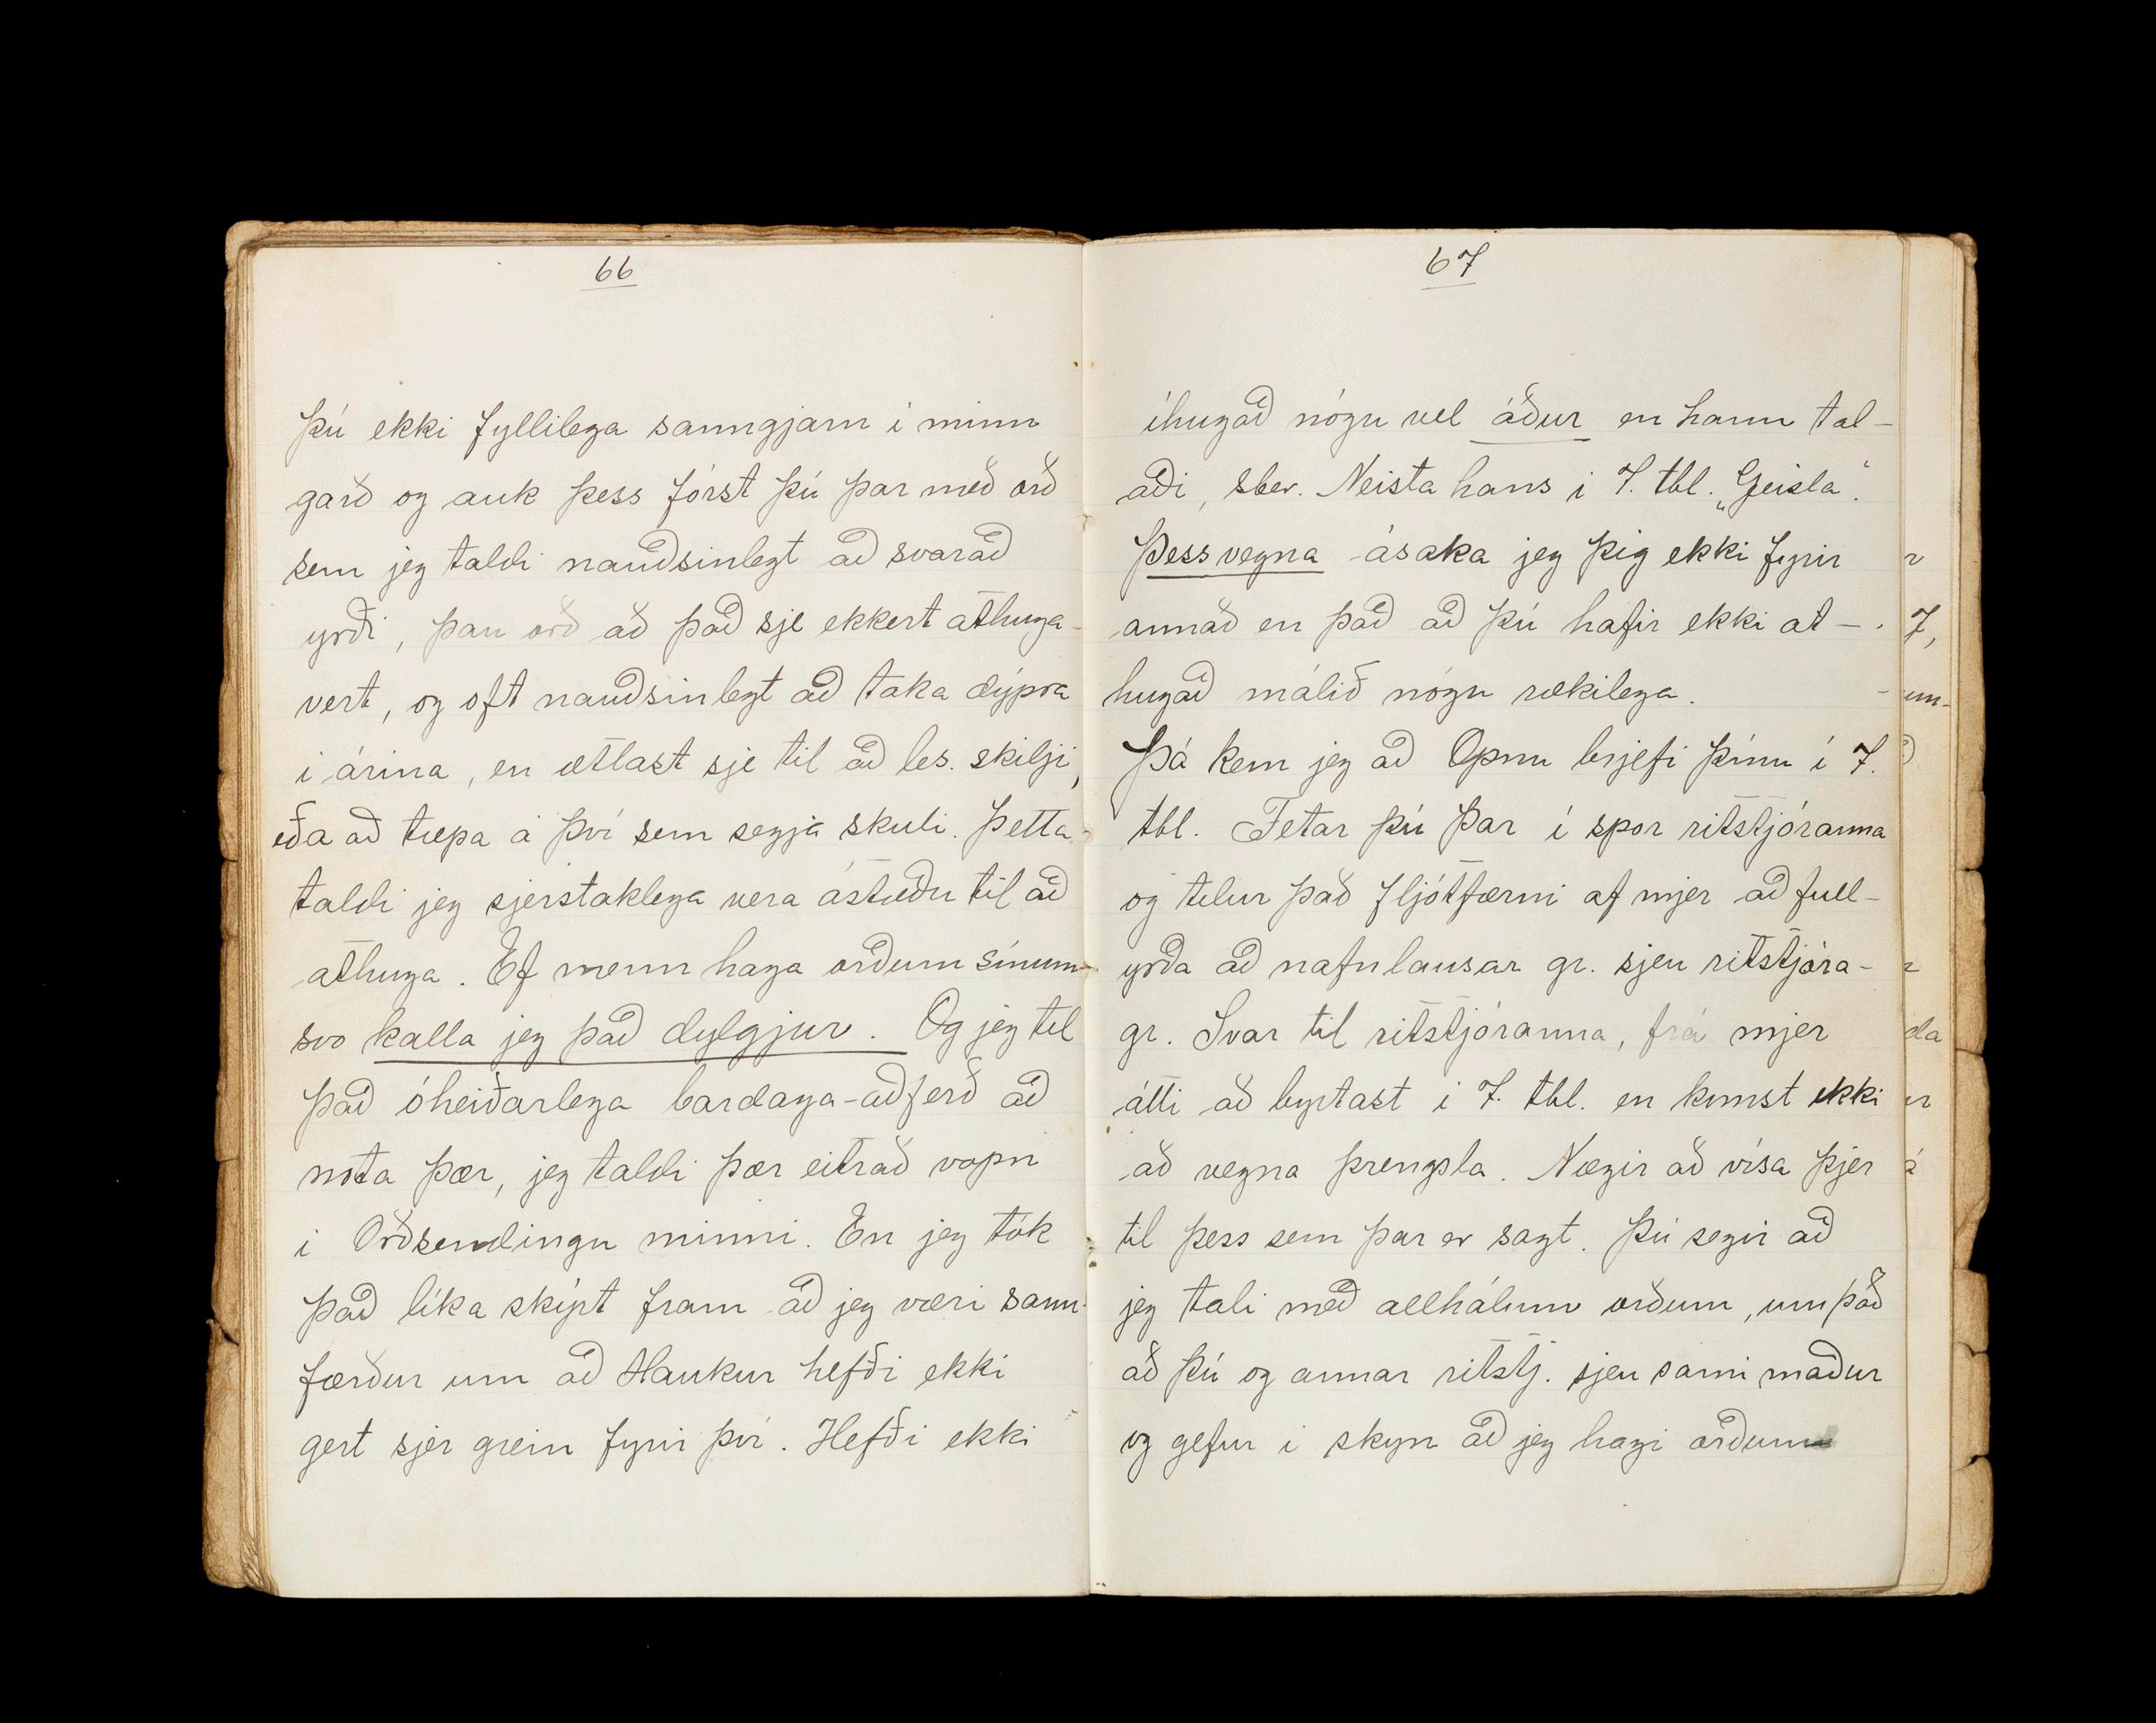 66
þú ekki fyllilega sanngjarn i minn
garð og auk þess fórst þú þar með orð
sem jeg taldi nauðsinlegt að svarað
yrði, þau orð að það sje ekkert athuga-
vert, og oft nauðsinlegt að taka dýpra
i árina, en ætlast sje til að les. skilji,
eða að tæpa á því sem segja skuli. Þetta
taldi jeg sjerstaklega vera ástæðu til að
athuga. Ef menn haga orðum sínum
svo kalla jeg það dylgjur. Og jeg tel
það óheiðarlega bardaga-aðferð að
nota þær, jeg taldi þær eitrað vopn
i Orðsendingu minni. En jeg tók
það líka skírt fram að jeg væri sann-
færður um að Haukur hefði ekki
gert sjer grein fyrir því. Hefði ekki
67
íhugað nógu vel áður en hann tal-
aði, sbr. Neista hans i 7. tbl. „Geisla“.
Þess vegna ásaka jeg þig ekki fyrir
annað en það að þú hafir ekki at-
hugað málið nógu rækilega.
Þá kem jeg að Opnu brjefi þínu í 7.
tbl. Fetar þú þar í spor ritstjóranna
og telur það fljótfærni af mjer að full-
yrða að nafnlausar gr. sjeu ritstjóra-
gr. Svar til ritstjóranna, frá mjer
átti að byrtast i 7. tbl. en komst ekki
að vegna þrengsla. Nægir að vísa þjer
til þess sem þar er sagt. Þú segir að
jeg tali með allhálum orðum, um það
að þú og annar ritstj. sjeu sami maður
og gefur i skyn að jeg hagi orðum